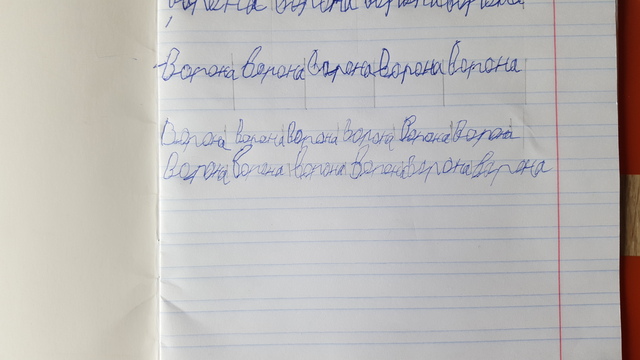 ворона ворона ворона ворона
Ворона ворона ворона ворона ворона
Ворона ворона ворона ворона ворона ворон
Ворона ворона ворона ворона ворона ворона